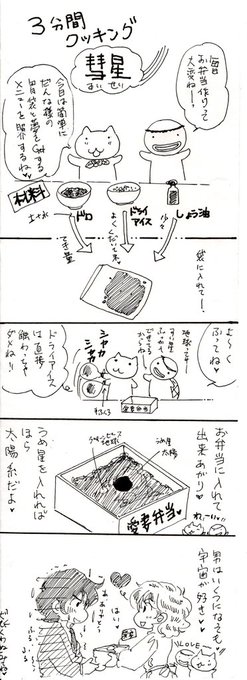 3分間
クッキング
彗星
すいせい
毎日
お弁当作りって
大変ねー
今日は簡単に
だんな様の
胃袋と夢をGetする
メニューを紹介するね♥
材料
ドロ
ドライ
アイス
しょう油
少々
袋に入れて…
よ〜く
ふってね
シャカ
シャカ
ドライアイス
は直接
触わっちゃ
ダメね!!
お弁当に入れて
出来あがり♥
うめ星
太陽
愛妻弁当
うめ星を入れれば
ほら
太陽系だよ♥
男はいくつになっても
宇宙が好き♥
はい。
ありがとう
LOVE